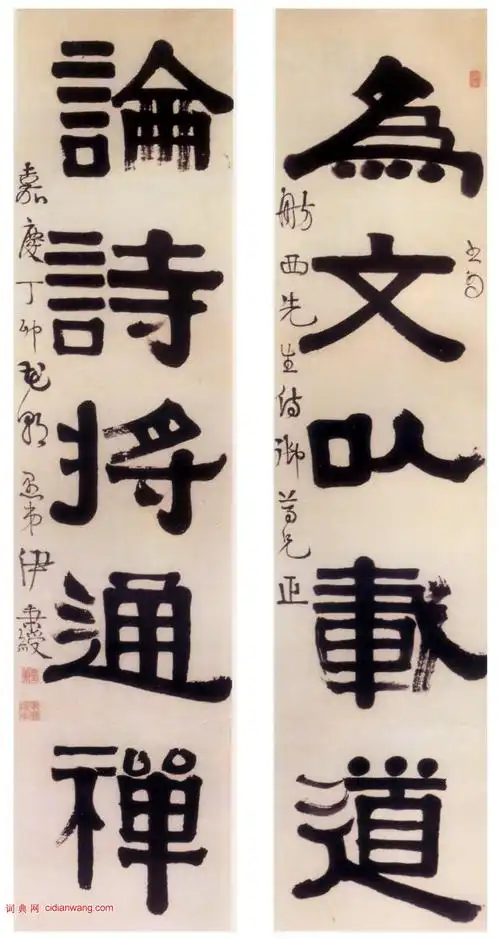 為文以載道
舫西先生侍御尊兄正
論詩將通禪
嘉慶丁卯花朝愚弟伊秉綬
词典网 cidianwang.com